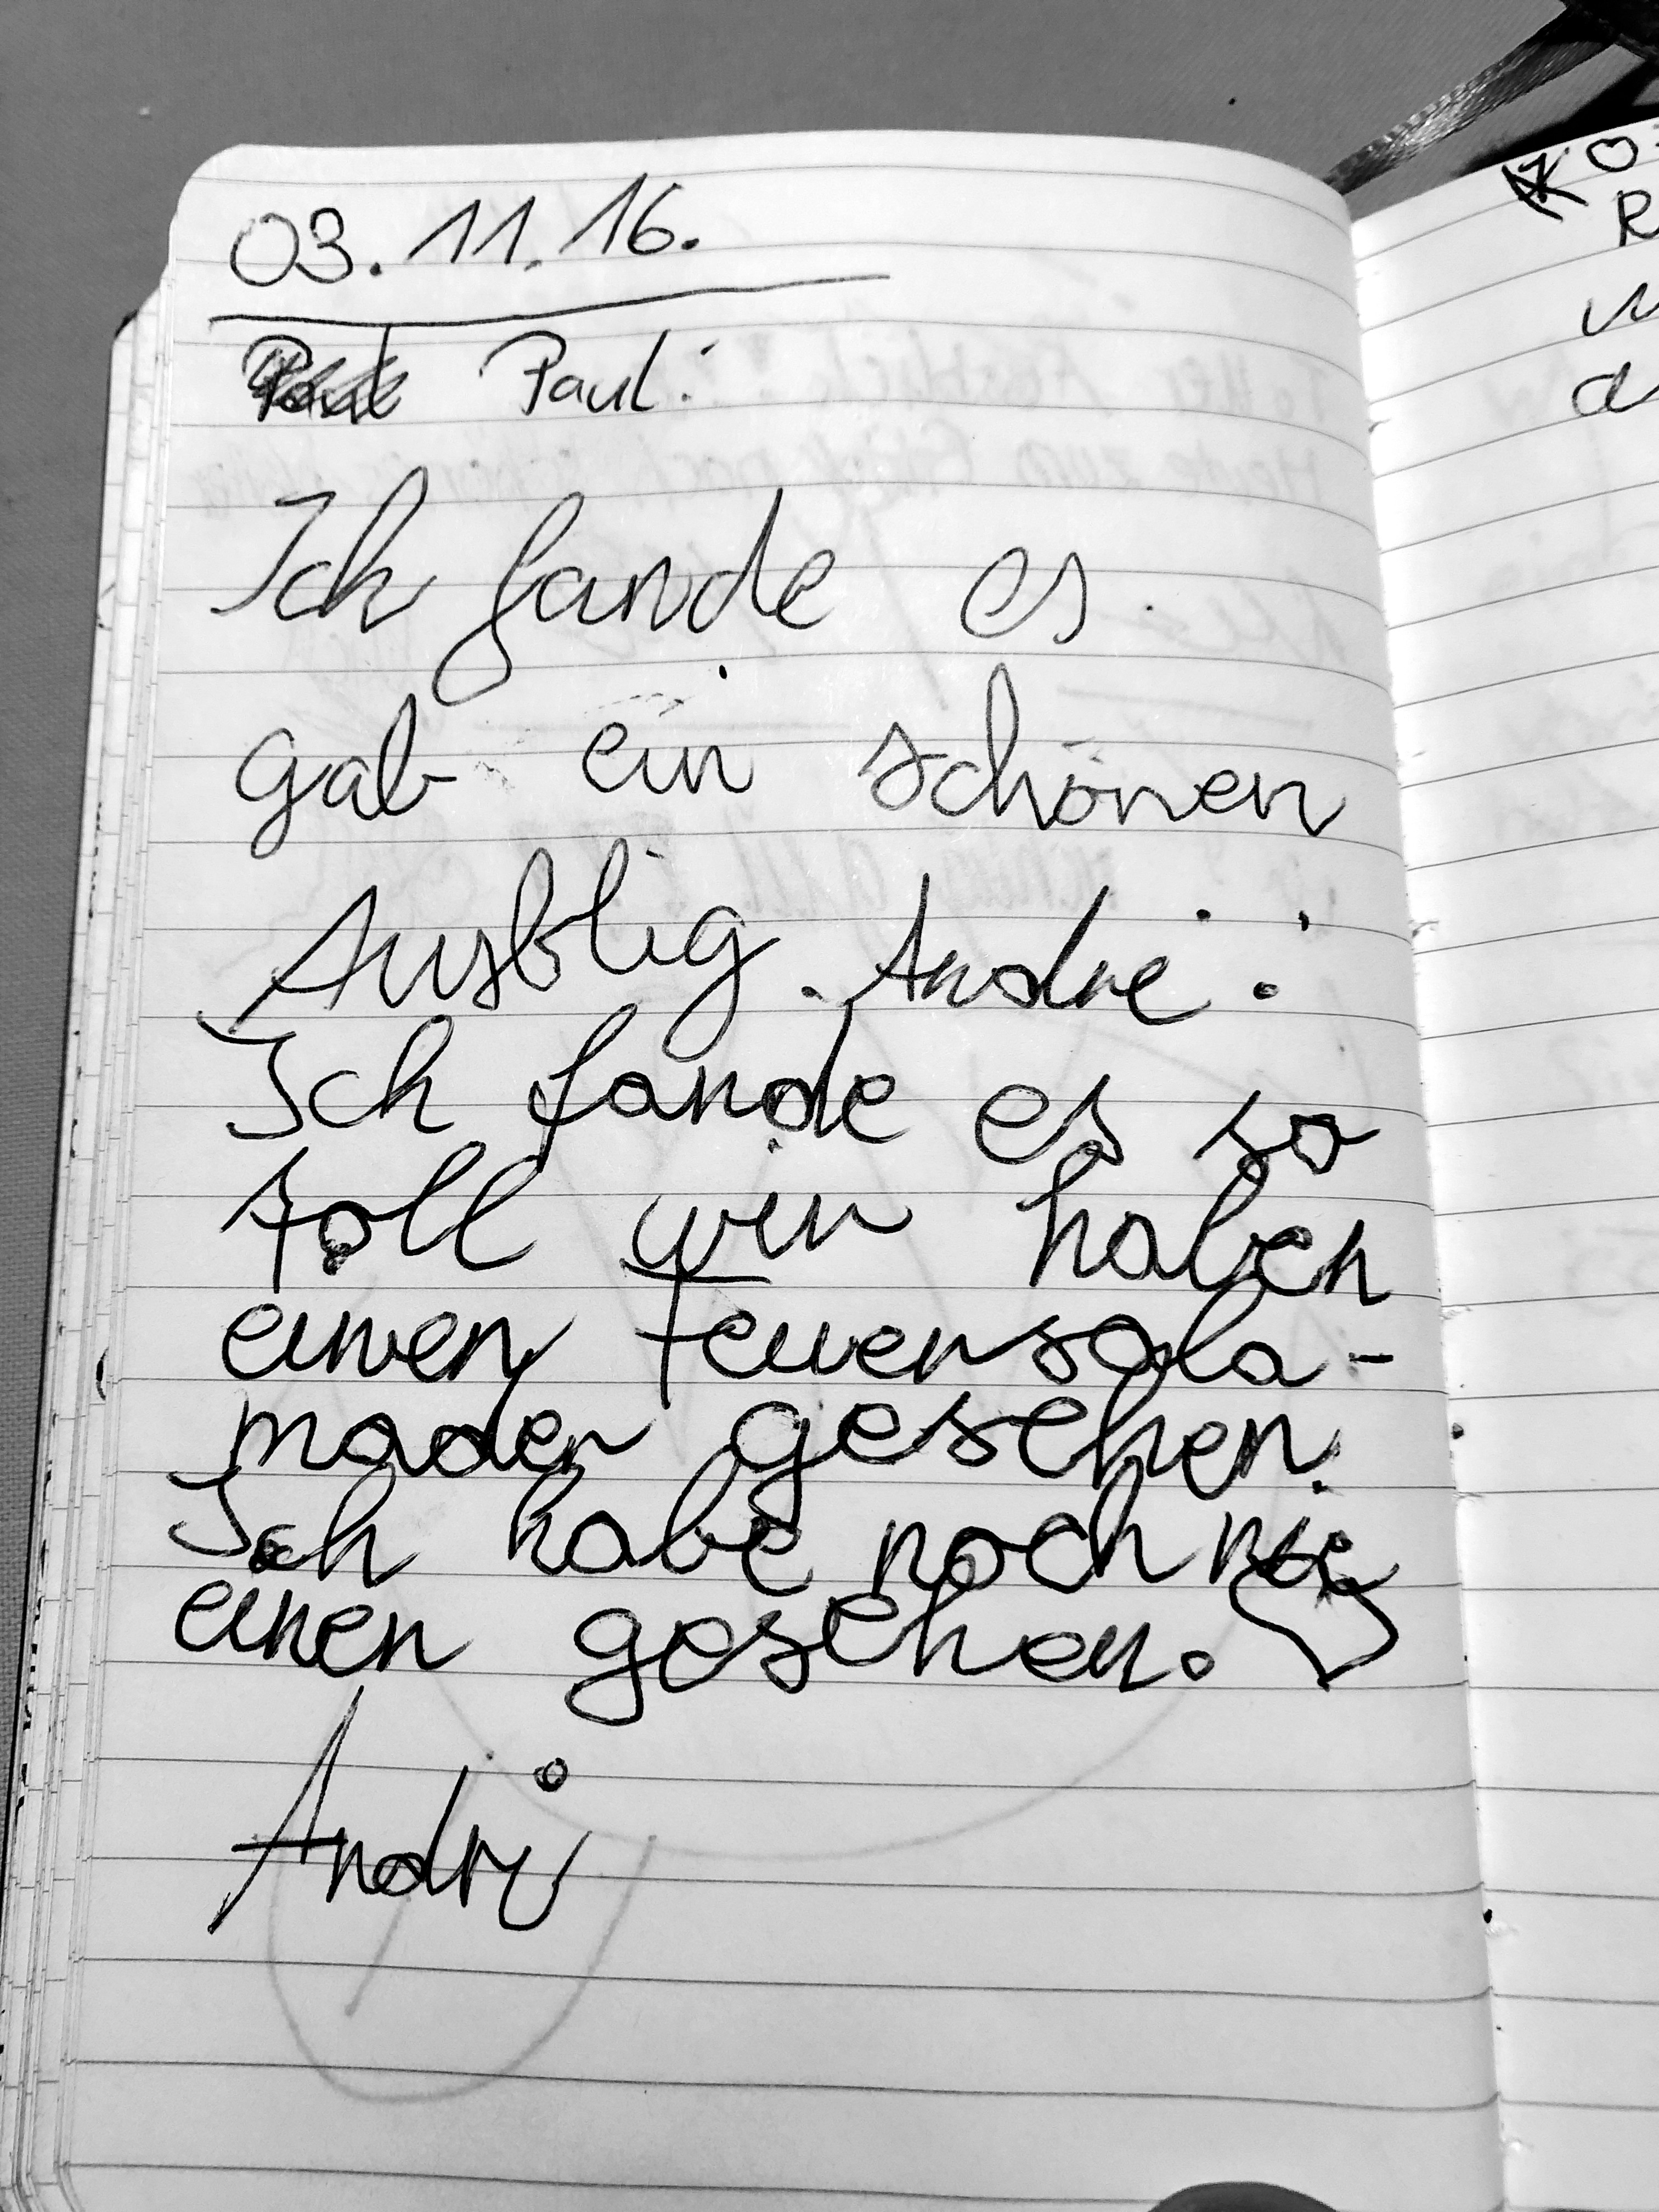 03.11.16.
Paul Paul:
Ich fande es
gab ein schönen
Ausblig. André:
Ich fande es so
toll wir haben
einen Feuersala-
mader gesehen.
Ich habe noch nie
einen gesehen.
André